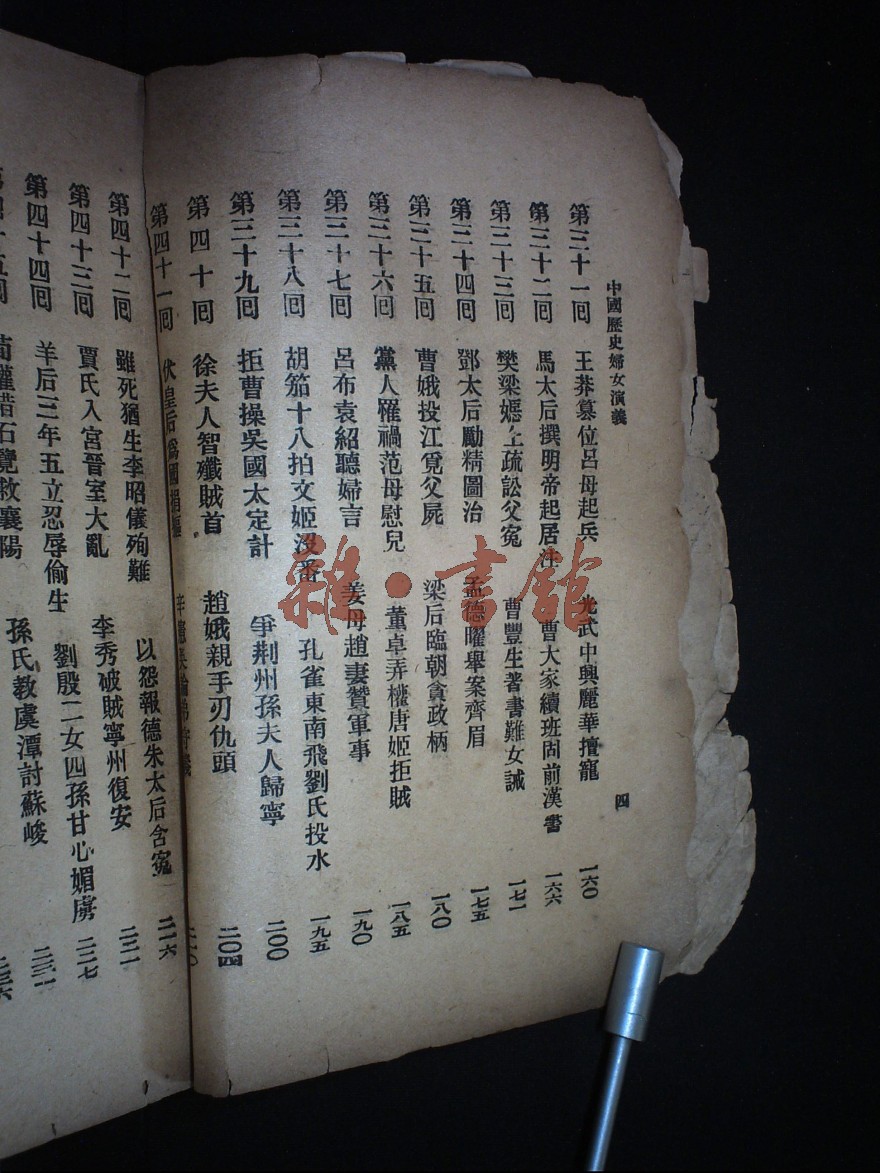 中國歷史婦女演義
四
第三十一回 王莽篡位呂母起兵 光武中興麗華擅寵 一六〇
第三十二回 馬太后撰明帝起居注 曹大家續班固前漢書 一六六
第三十三回 樊梁嫕上疏訟父冤 曹豐生著書難女誡 一七一
第三十四回 鄧太后勵精圖治 孟德曜舉案齊眉 一七五
第三十五回 曹娥投江覓父屍 梁后臨朝貪政柄 一八〇
第三十六回 黨人罹禍范母慰兒 董卓弄權唐姬拒賊 一八五
第三十七回 呂布袁紹聽婦言 姜母趙妻贊軍事 一九〇
第三十八回 胡笳十八拍文姬沒番 孔雀東南飛劉氏投水 一九五
第三十九回 拒曹操吳國太定計 爭荆州孫夫人歸寧 二〇〇
第四十回 徐夫人智殲賊首 趙娥親手刃仇頭 二〇四
第四十一回 伏皇后爲國捐軀
第四十二回 雖死猶生李昭儀殉難 以怨報德朱太后含冤 二一六
第四十三回 賈氏入宮晉室大亂 李秀破賊寧州復安
第四十四回 羊后三年五立忍辱偷生 劉殷二女四孫甘心媚虜 二二七
荀灌借石覽救襄陽 孫氏教虞潭討蘇峻
雜·書館